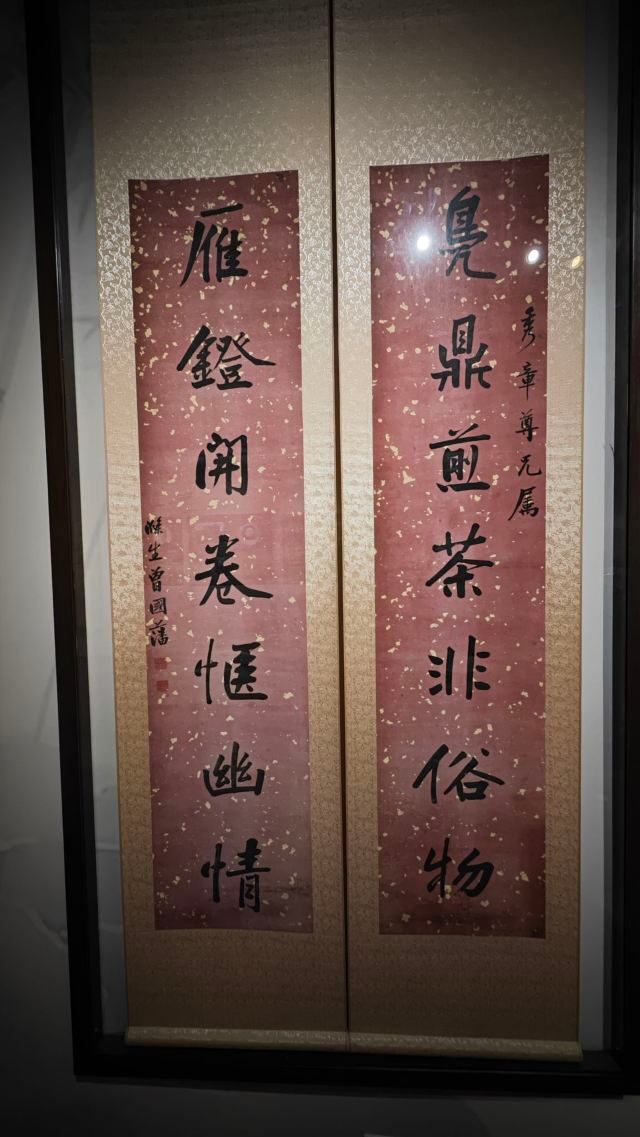 秀章尊兄属
鳧鼎煎茶非俗物
雁鐙開卷愜幽情
滌生曾國藩